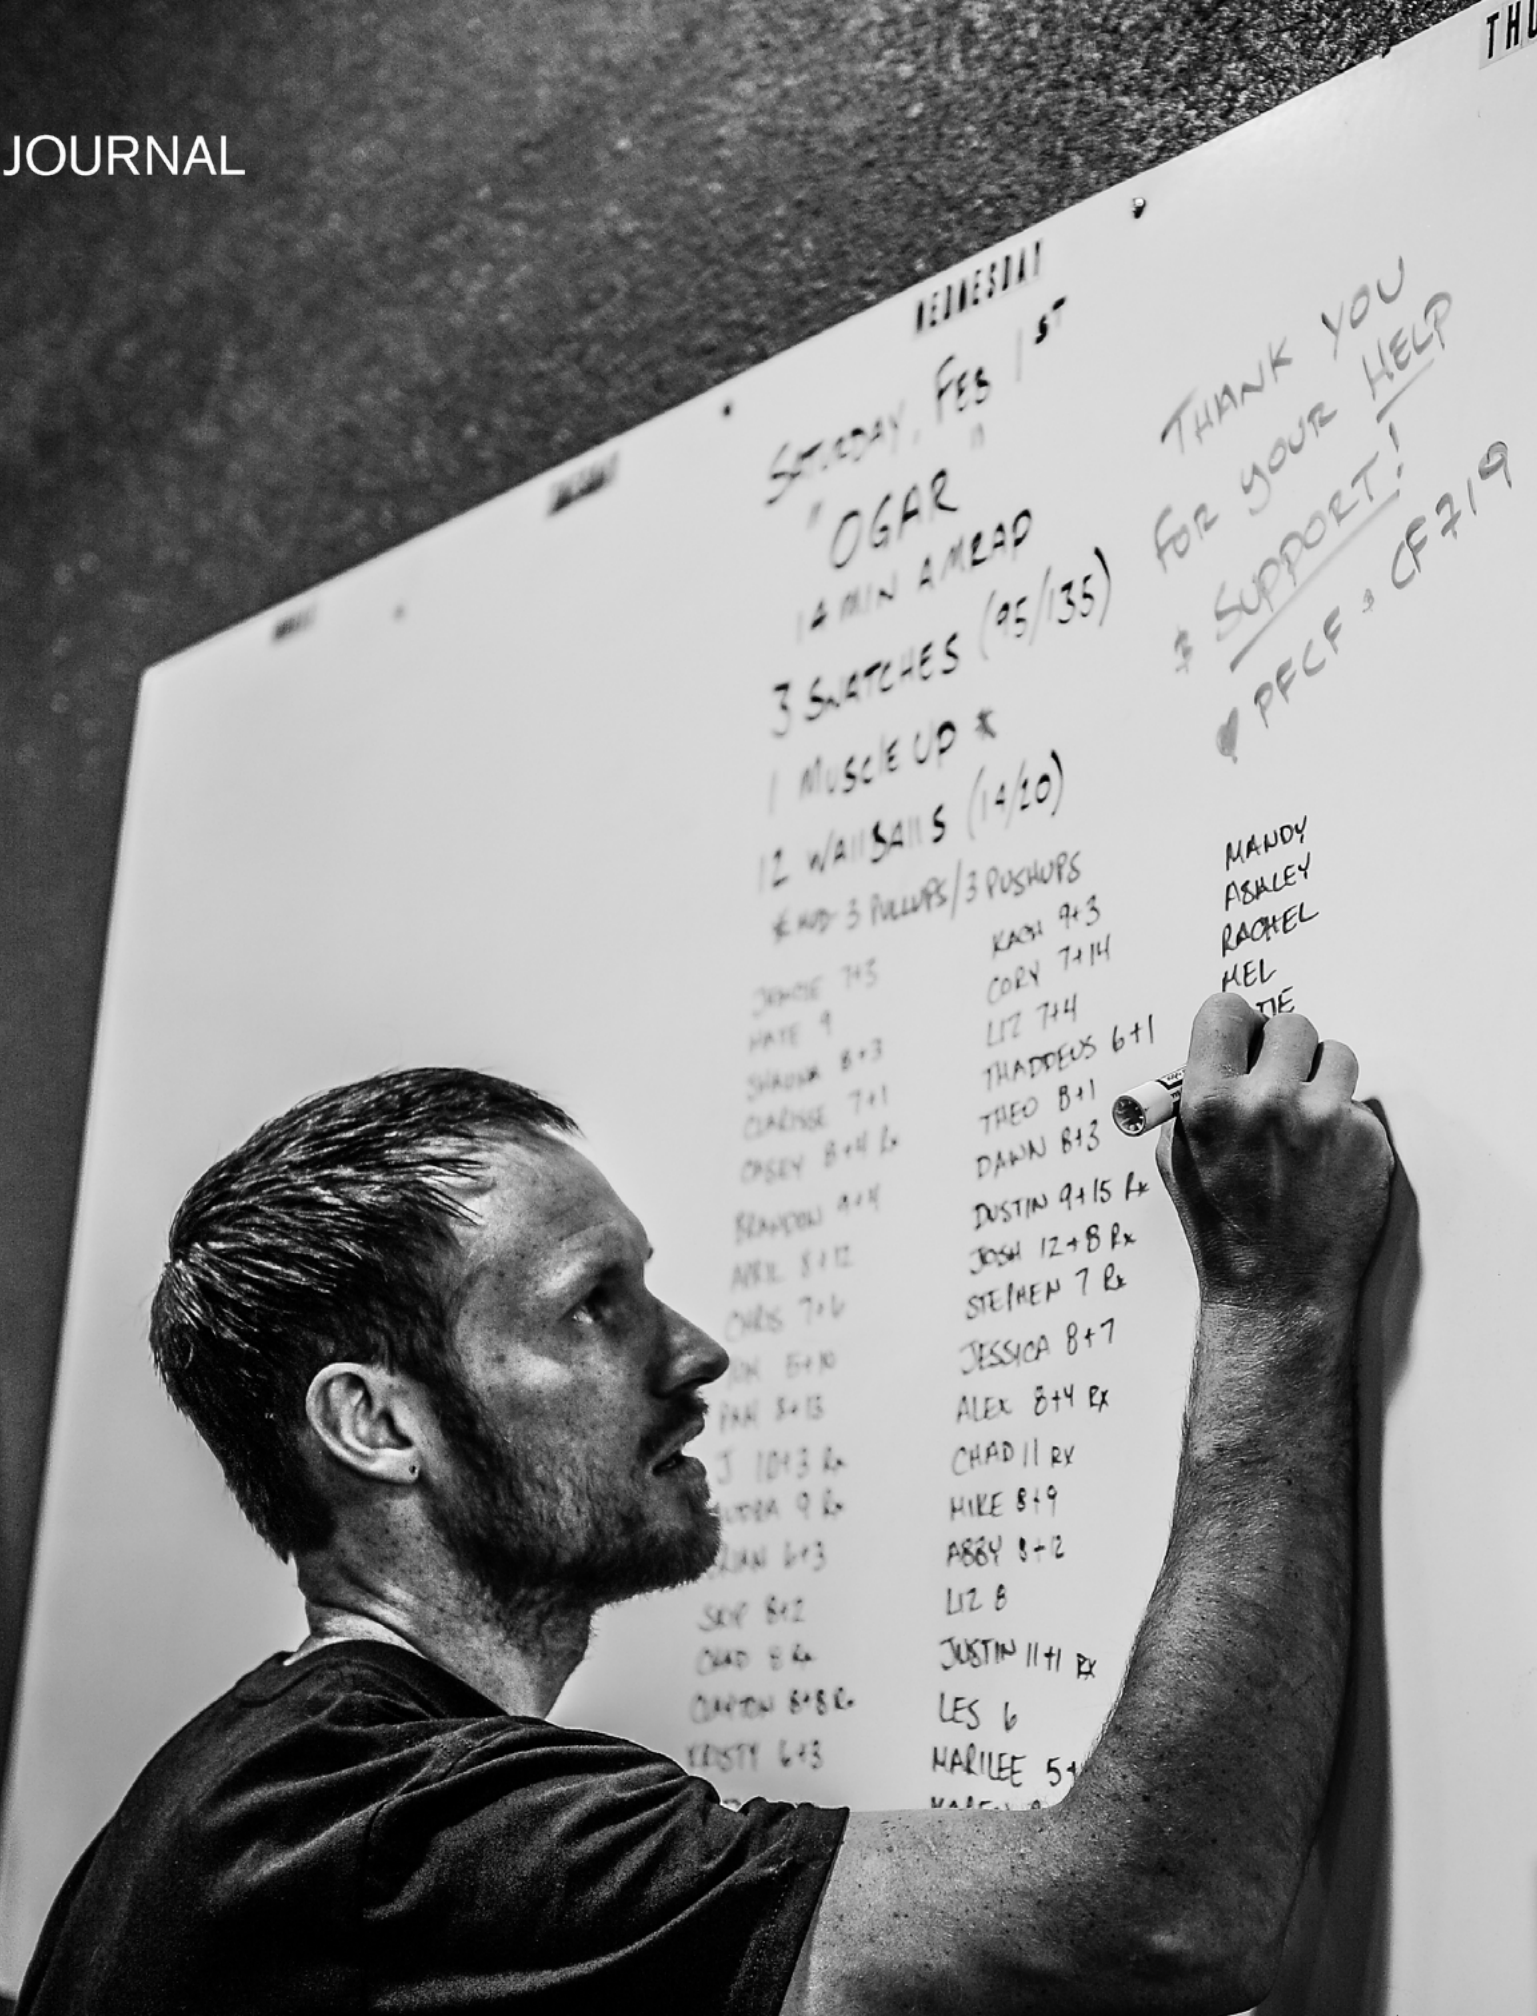 JOURNAL
THU
WEDNESDAY
SATURDAY, FEB 1ST
"OGAR"
14 MIN AMRAP
3 SNATCHES (95/135)
1 MUSCLE UP *
12 WALLBALLS (14/20)
* MOD- 3 PULLUPS/3 PUSHUPS
JAMIE 7+3
NATE 9
SHAUNA 8+3
CLARISSE 7+1
CASEY 8+4 Rx
BRANDON 9+4
APRIL 8+12
CHRIS 7+6
PAM 8+13
J 10+3 Rx
9 Rx
6+3
SKIP 8+2
CHAD 8 Rx
CLAYTON 8+8 Rx
KRISTY 6+3
KACH 9+3
CORY 7+14
LIZ 7+4
THADDEUS 6+1
THEO 8+1
DAWN 8+3
DUSTIN 9+15 Rx
JOSH 12+8 Rx
STEPHEN 7 Rx
JESSICA 8+7
ALEX 8+4 Rx
CHAD 11 RX
MIKE 8+9
ABBY 8+12
LIZ 8
JUSTIN 11+1 RX
LES 6
MARILEE 5+
THANK YOU
FOR YOUR HELP
& SUPPORT!
♥ PFCF & CF719
MANDY
ASHLEY
RACHEL
MEL